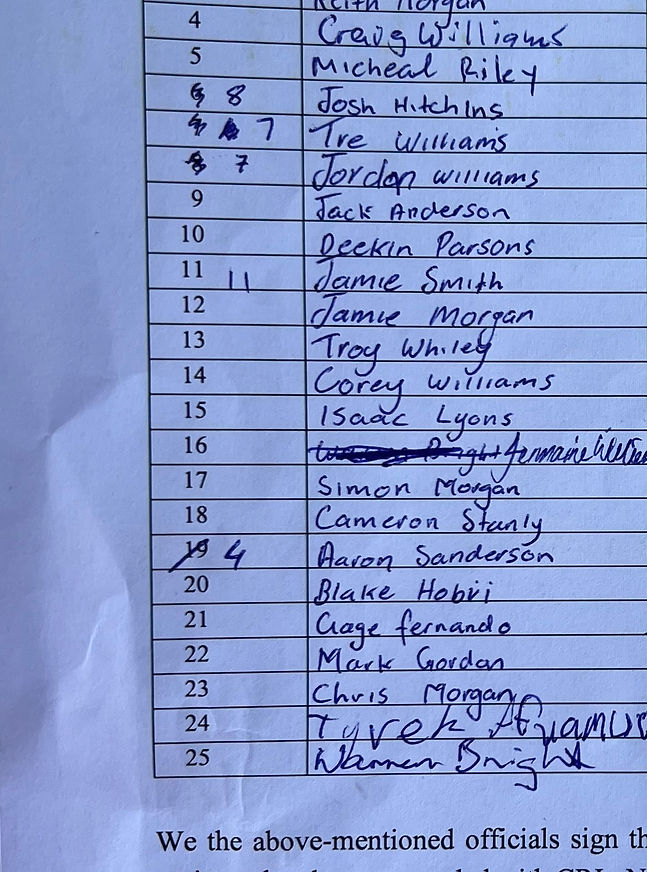 Keith Morgan
4 Craig Williams
5 Micheal Riley
8 Josh Hitchins
7 Tre Williams
7 Jordan Williams
9 Jack Anderson
10 Deekin Parsons
11 11 Jamie Smith
12 Jamie Morgan
13 Troy Whiley
14 Corey Williams
15 Isaac Lyons
16 Jermaine
17 Simon Morgan
18 Cameron Stanly
19 4 Aaron Sanderson
20 Blake Hobii
21 Gage fernando
22 Mark Gordan
23 Chris Morgan
24 Tyrek
25 Warren Bright
We the above-mentioned officials sign th